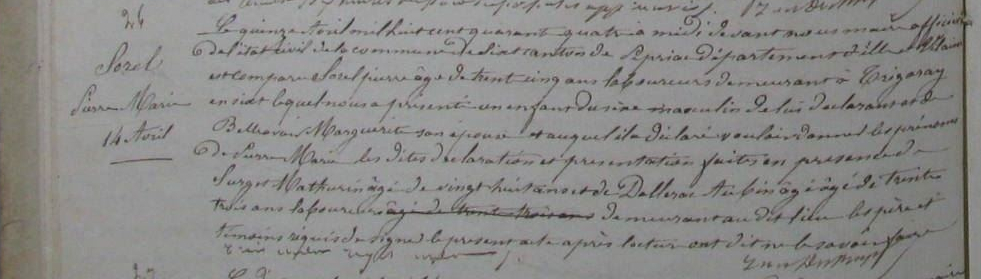 26
Sorel
Pierre Marie
14 Avril
Le quinze Avril mil huit cent quarant quatre à midi devant nous maire officier
De l'état civil de la commune de Sixt canton de Pipriac département d'ille et Vilaine
est comparu Sorel pierre âgé de trent cinq ans laboureurs demeurant à Trigaray
en sixt lequel nous a présenté un enfant du sixe masculin De lui Declarant et de
Marguerite son épouse et auquel il a déclaré vouloir donner les prénoms
De Pierre Marie les dites declaration et presentation faites en presence de
Surget Mathurin âgé de vingt huit ans et de Dallerac Aubin âgé âgé de trente
trois ans laboureurs âgé de trente trois ans demeurant au dit lieu les père et
temoins réquis de signer le present acte après lecture ont dit ne le savoir faire